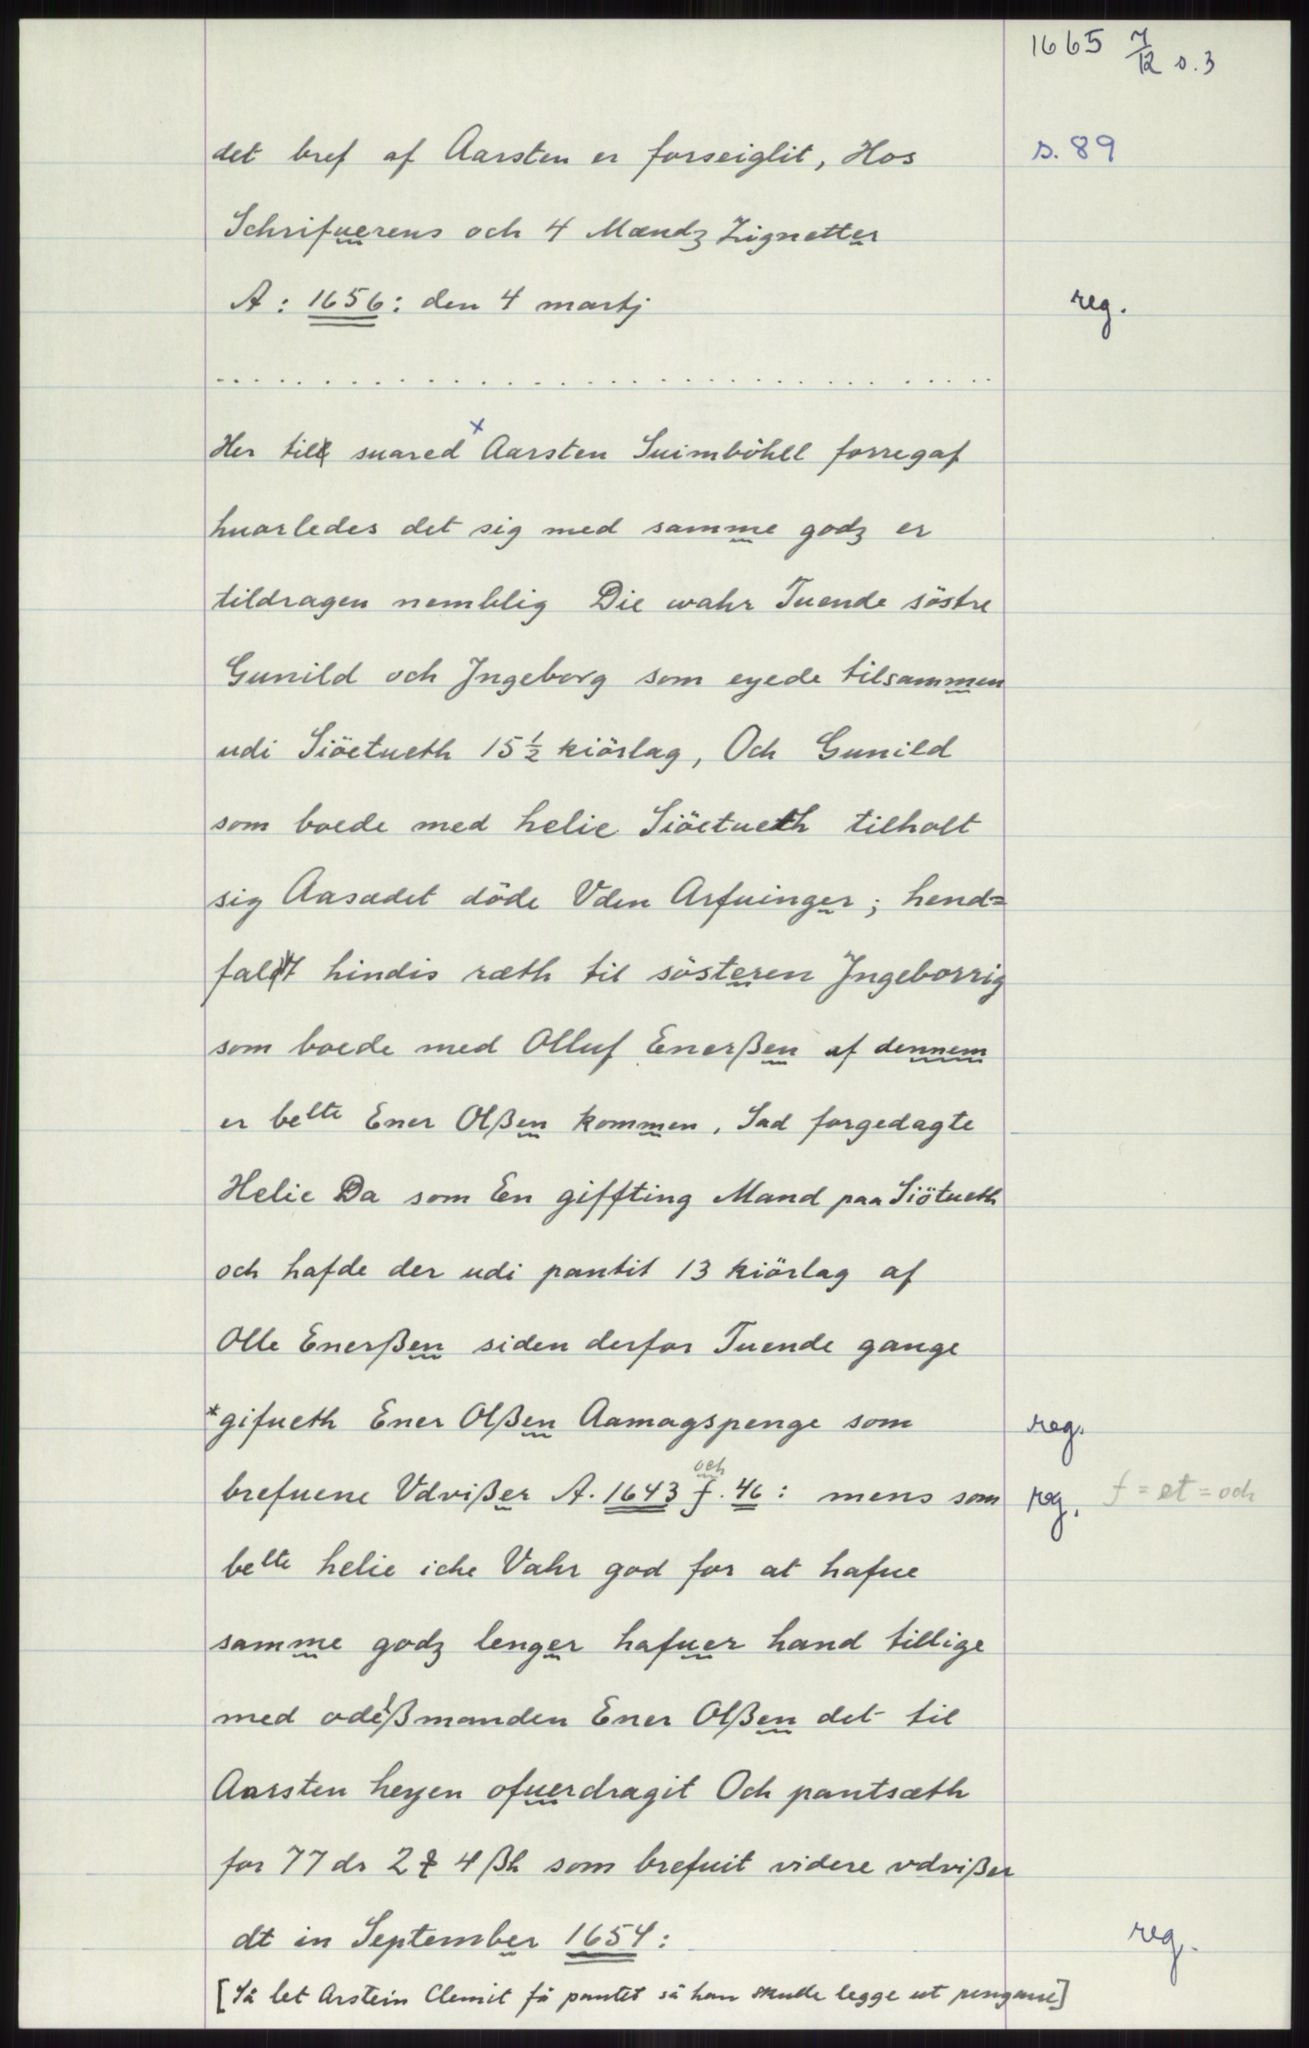 1665 7/12 s. 3
det bref af Aarsten er forseiglit, Hos s. 89
Schrifuerens och 4 Mændz Zignetter
A: 1656: den 4 martj reg.
. . . . . . . . . . . . . . . . . . . . . . . . . . . . . .
Her till suared x Aarsten Suimböhll forregaf
huorledes det sig med samme godz er
tildragen nemblig Die wahr Tuende söstre
Gunild och Jngeborg som eyede tilsammen
udi Siöetueth 15 1/2 kiörlag, Och Gunild
som boede med helie Siöetueth tilholt
sig Aasædet döde Vden Arfuinger; hend=
faldt hindis ræth til sösteren Jngeborrig
som boede med Olluf Enerßen af dennem
er belte Ener Olßen kommen. Sad forgedagte
Helie Da som En giffting Mand paa Siötueth
och hafde der udi pantit 13 kiörlag af
Olle Enerßen siden derfor Tuende gange
*gifueth Ener Olßen Aamagspenge som reg.
och
brefuene Vdvißer A. 1643 f. 46: mens som reg. f = et = och
belte helie iche Vahr god for at hafue
samme godz lenger hafuer hand tillige
med odelßmanden Ener Olßen det til
Aarsten heyen ofuerdragit Och pantsæth
for 77 dr 2 ꝑ 4 ßh som brefuit videre vdvißer
dt in September 1654: reg.
[Så let Arstein Clemit få pantet så han skulde legge ut pengane]